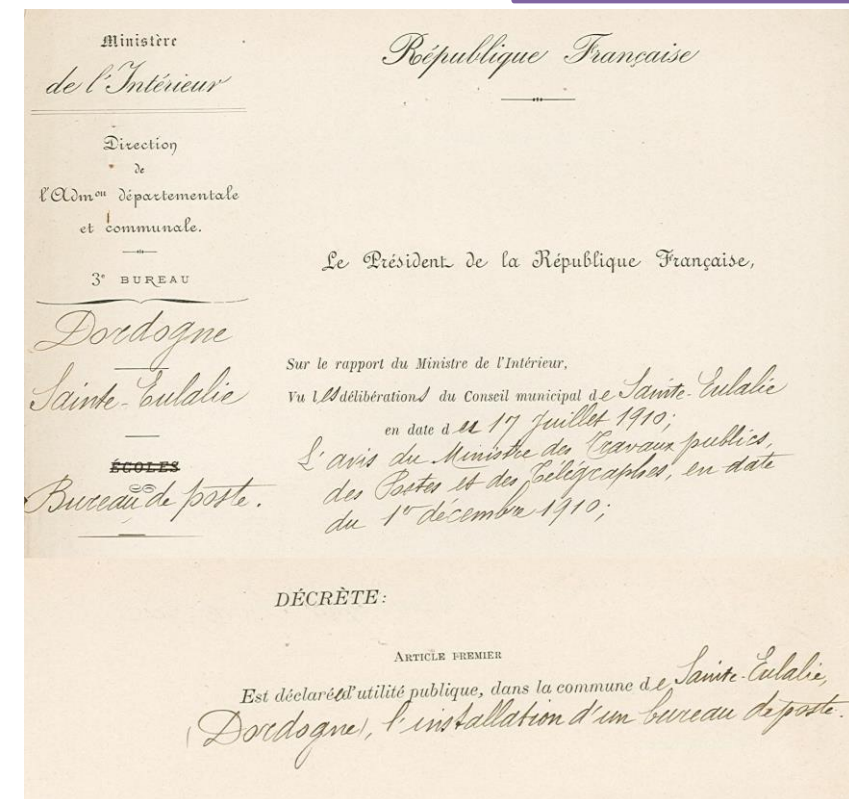 Ministère
de l'Intérieur
Direction
de
l'Admon départementale
et communale.
3e BUREAU
Dordogne
Sainte-Eulalie
ÉCOLES
Bureau de poste.
République Française
Le Président de la République Française,
Sur le rapport du Ministre de l'Intérieur,
Vu les délibérations du Conseil municipal de Sainte-Eulalie
en date du 17 Juillet 1910;
L'avis du Ministre des Travaux publics,
des Postes et des Télégraphes, en date
du 1er décembre 1910;
DÉCRÈTE:
ARTICLE PREMIER
Est déclarée d'utilité publique, dans la commune de Sainte-Eulalie,
(Dordogne), l'installation d'un bureau de poste.